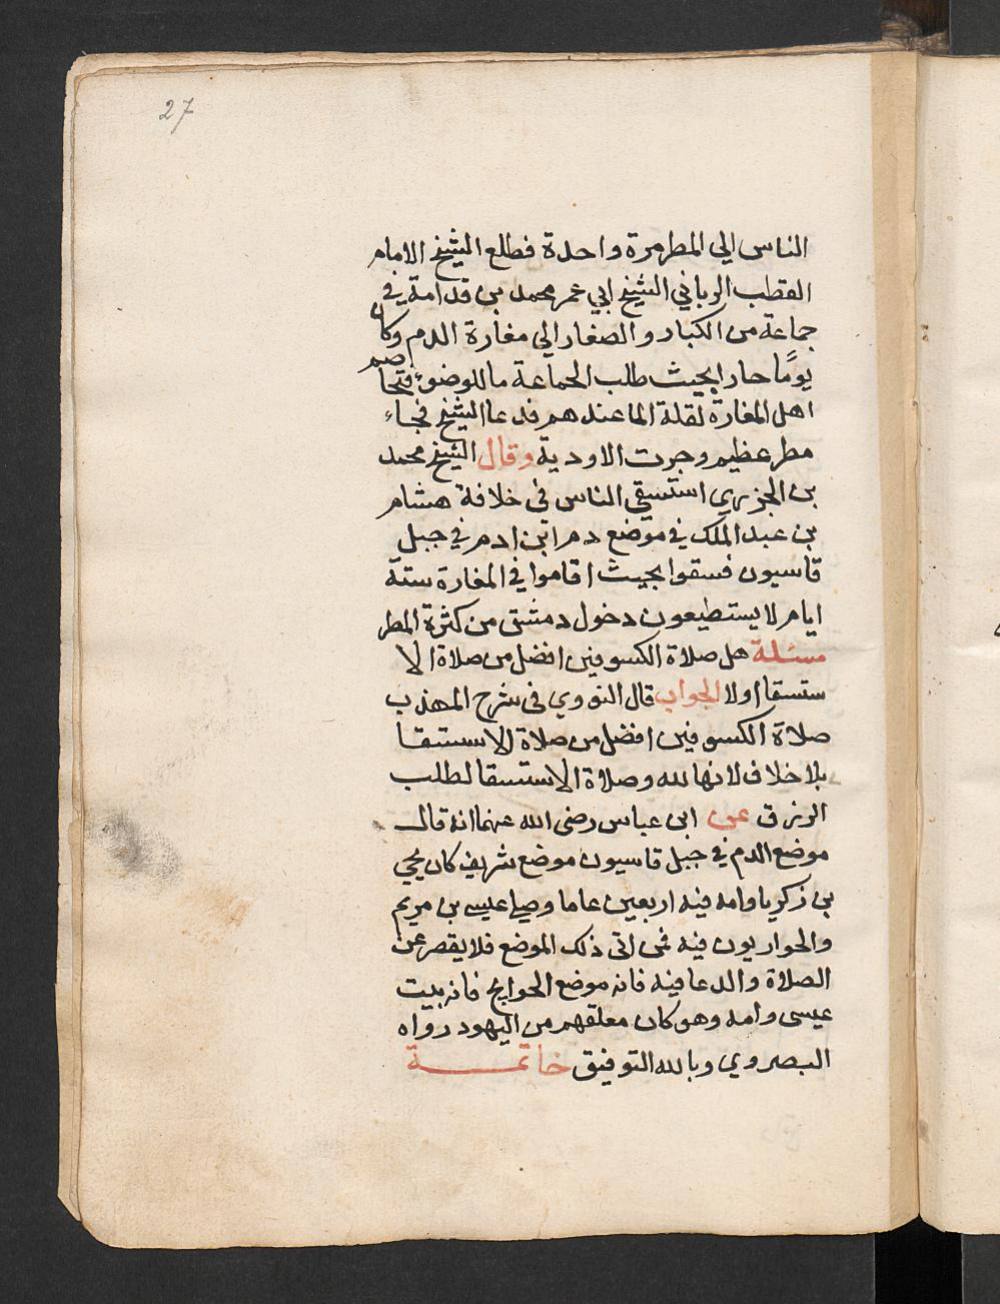 27
الناس الي المطر مرة واحدة فطلع الشيخ الامام
القطب الرباني الشيخ ابي عمر محمد بن قدامة في
جماعة من الكبار والصغار الي مغارة الدم وكان
يومًا حارا بحيث طلب الجماعة ما للوضوء فتخاصم
اهل المغارة لقلة الما عندهم فدعا الشيخ فجاء
مطر عظيم وجرت الاودية وقال الشيخ محمد
بن الجزري استسقي الناس في خلافة هشام
بن عبد الملك في موضع دم ابن ادم في جبل
قاسيون فسقوا بحيث اقاموا في المغارة ستة
ايام لا يستطيعون دخول دمشق من كثرة المطر
مسئلة هل صلاة الكسوفين افضل من صلاة الا
ستسقا اولا الجواب قال النووي في شرح المهذب
صلاة الكسوفين افضل من صلاة الاستسقا
بلا خلاف لانها لله وصلاة الاستسقا لطلب
الرزق عن ابن عباس رضى الله عنهما انه قال
موضع الدم في جبل قاسيون موضع شريف كان يحي
بن زكريا وامه فيه اربعين عاما وصلي عيسى بن مريم
والحواريون فيه فمن اتى ذلك الموضع فلا يقصر عن
الصلاة والدعا فيه فانه موضع الحوايج فانه بيت
عيسى وامه وهو كان معلقهم من اليهود رواه
البصروي وبالله التوفيق خاتمة